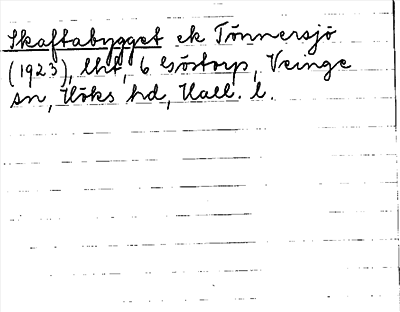 Skaftabygget ek Tönnersjö
(1923), lht, 6 Göstorp, Veinge
sn, Höks hd, Hall. l.